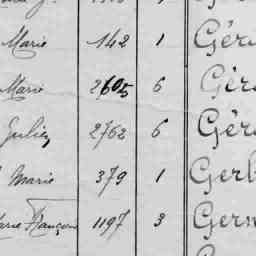 Marie 142 1 Géra
Marie 2605 6 Géra
Julien 2762 6 Géra
Marie 379 1 Gerb
Marie François 1197 3 Germ